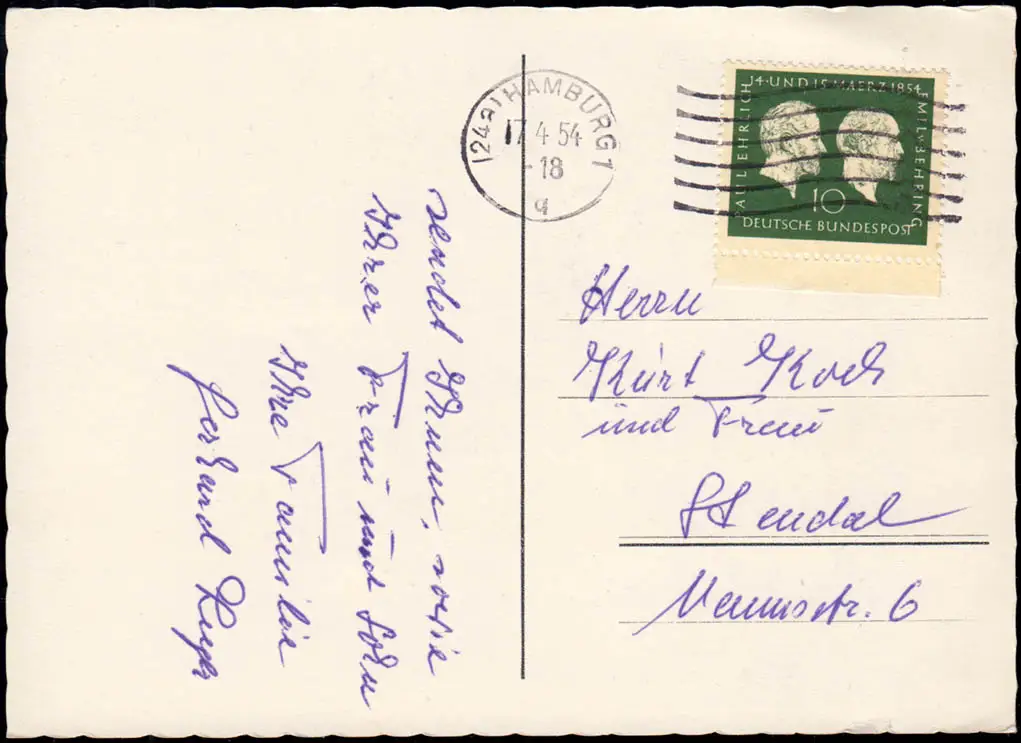 sendet Ihnen, sowie
Ihrer Frau und Sohn
Ihre Familie
Gerhard
(24a) HAMBURG 1
17.4.54
-18
q
14·UND 15·MAERZ 1854
PAUL EHRLICH
EMIL v. BEHRING
10
DEUTSCHE BUNDESPOST
Herrn
Kurt Koch
und Frau
Stendal
6